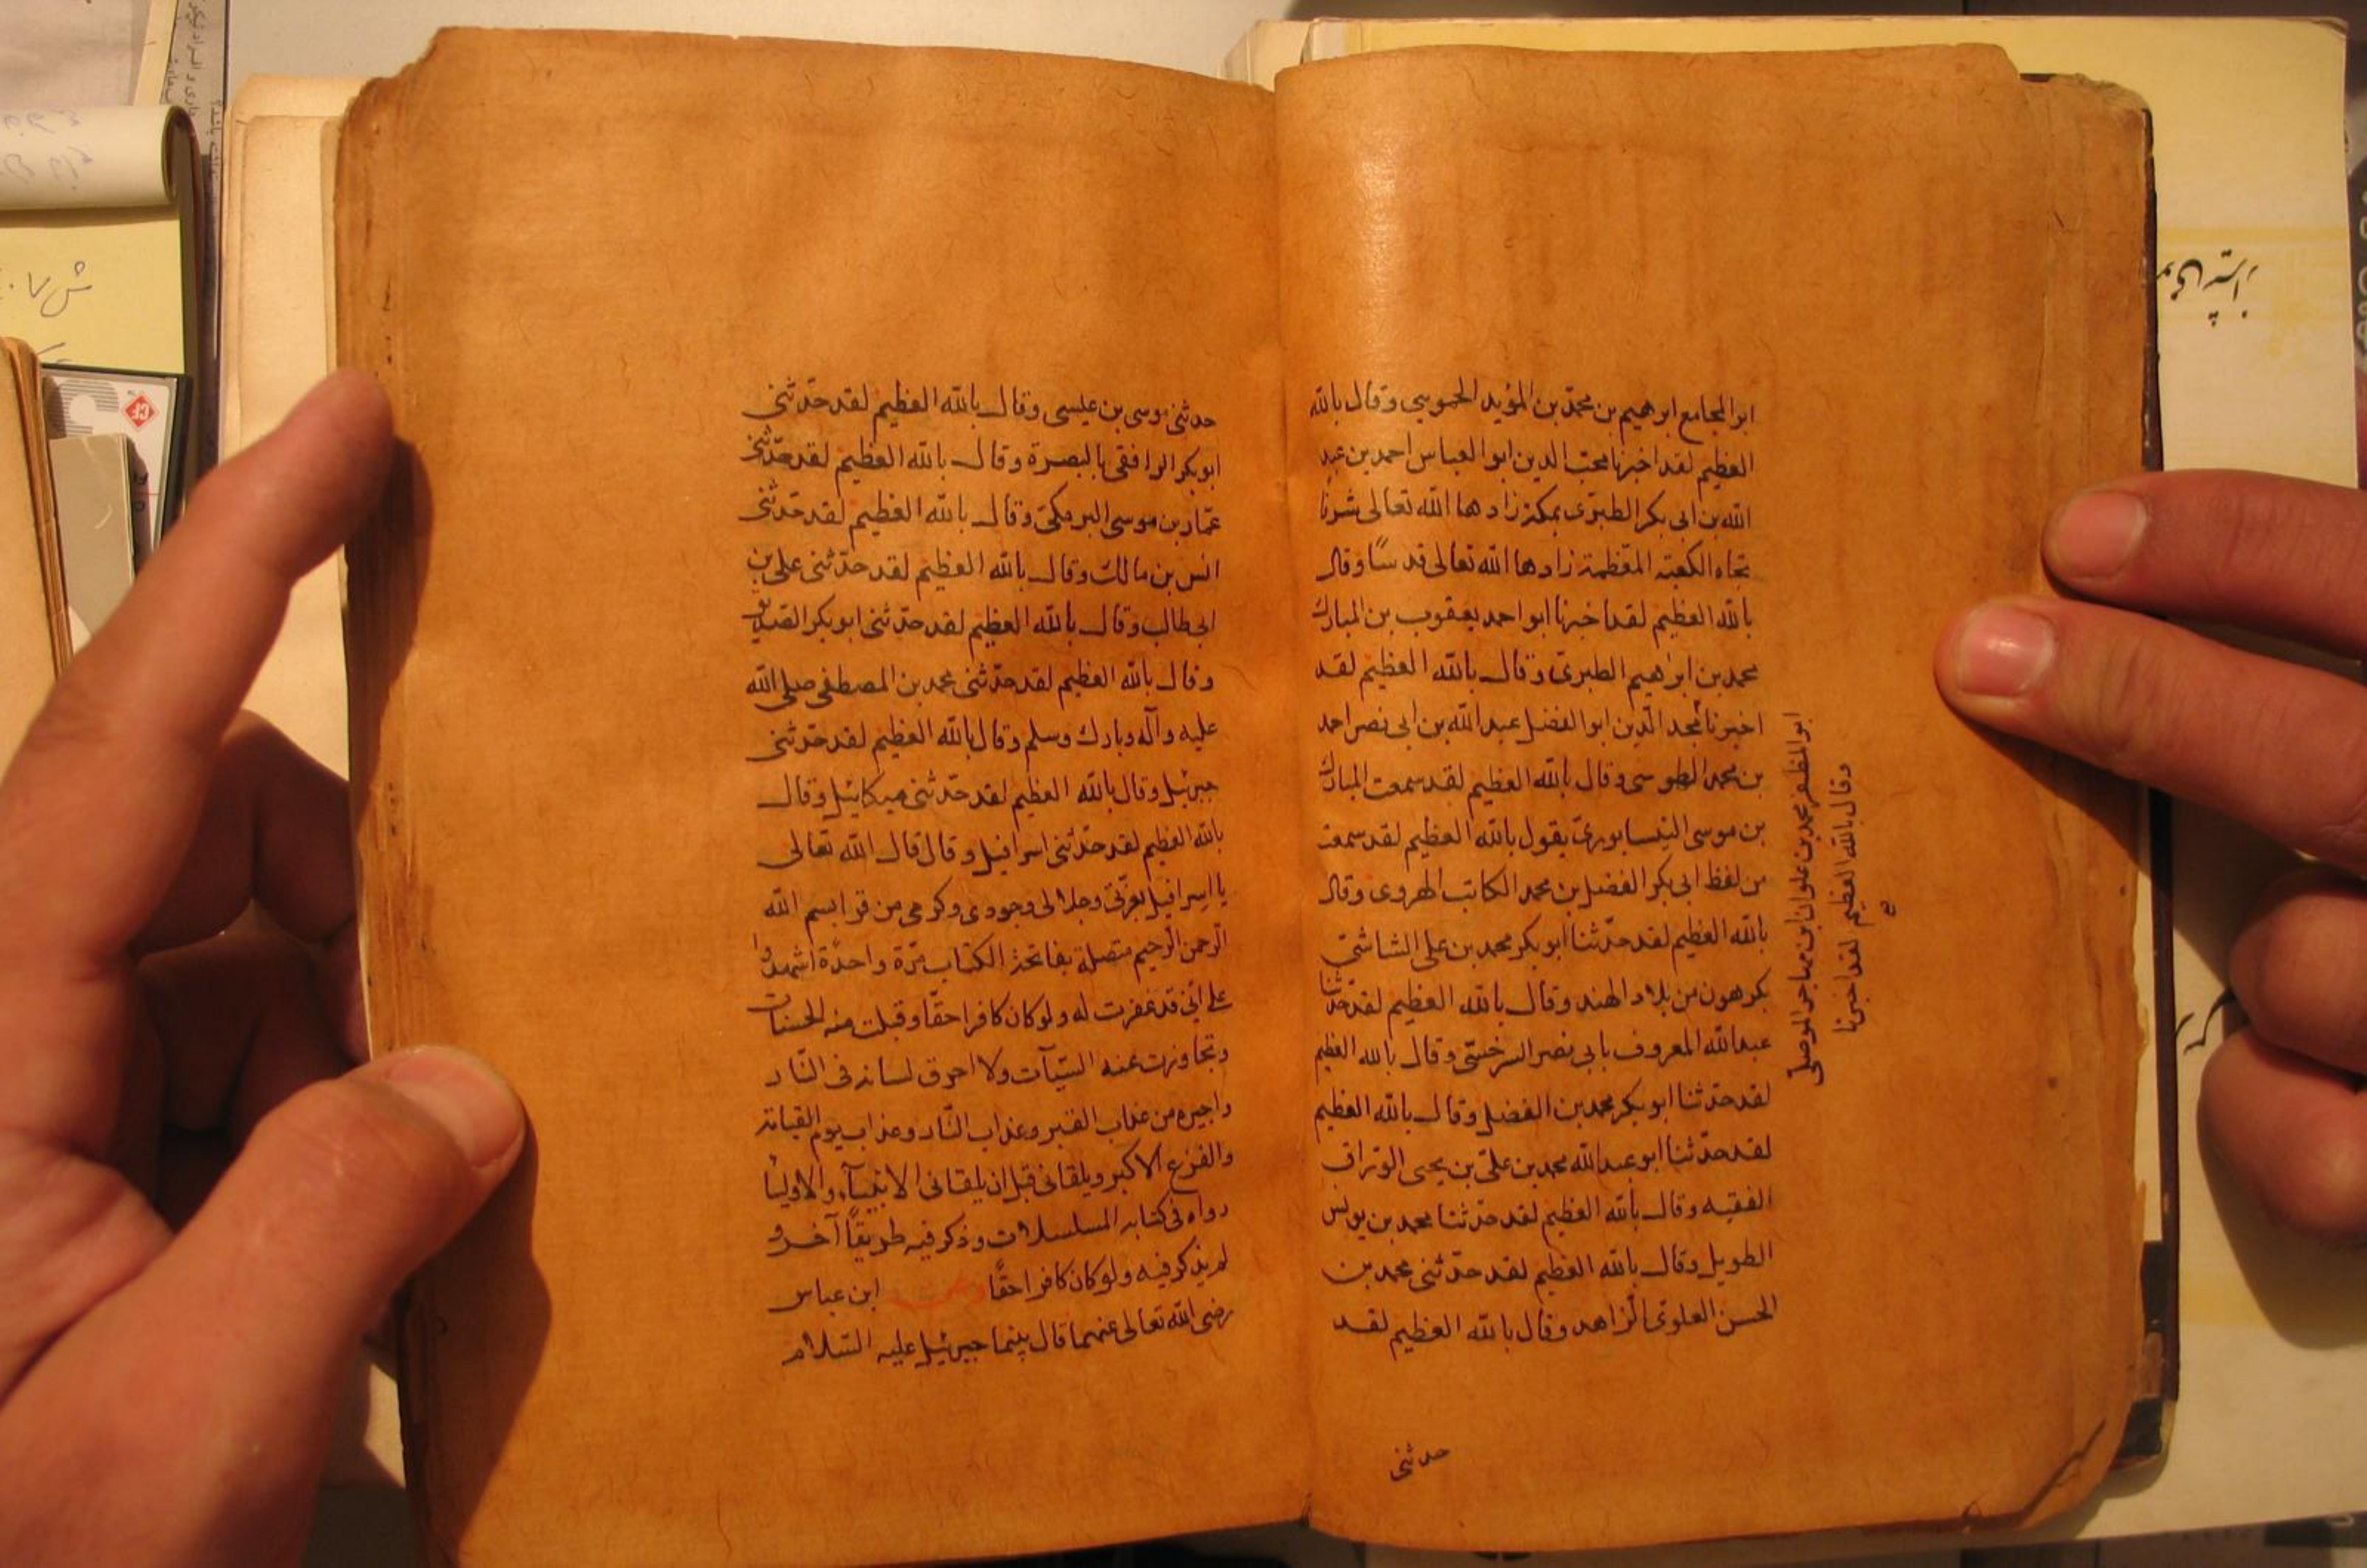 ابو المجامع ابرهيم بن محمّد بن المؤيد الحموىي وقال بالله
العظيم لقد اخبرنا محبّ الدين ابو العباس احمد بن عبد
الله بن ابى بكر الطبرّى بمكة زادها الله تعالى شرفًا
تجاه الكعبة المعّظمة زادها الله تعالى قدسًا وقال
بالله العظيم لقد اخبرنا ابو احمد يعقوب بن المبارك
محمد بن ابرٰهيم الطبرىّ وقال بالله العظيم لقد
اخبرنا مجد الدّين ابو الفضل عبد الله بن ابى نصر احمد
بن محمد الطوسى وقال بالله العظيم لقد سمعت المبارك
بن موسى النيسابورىّ يقول بالله العظيم لقد سمعت
من لفظ ابى بكر الفضل بن محمد الكاتب الهروى وقال
بالله العظيم لقد حدّثنا ابو بكر محمد بن على الشاشىّ
بكرهون من بلاد الهند وقال بالله العظيم لقد حدّثنا
عبد الله المعروف بابى نصر السرخسّى وقال بالله العظيم
لقد حدثنا ابو بكر محمد بن الفضل وقال بالله العظيم
لقد حدّثنا ابو عبد الله محمد بن علىّ بن يحيى الورّاق
الفقيه وقال بالله العظيم لقد حدّثنا محمد بن يونس
الطويل وقال بالله العظيم لقد حدّثنى محمد بن
الحسن العلوىّ الزاهد وقال بالله العظيم لقد
حدثنى
ابو المظفر محمد بن علوان بن مهاجر الموصلى
وقال بالله العظيم لقد اخبرنا
حدثنى موسى بن عيسى وقال بالله العظيم لقد حدّثنى
ابو بكر الرافقى بالبصرة وقال بالله العظيم لقد حدّثنى
عمّار بن موسى البرمكىّ وقال بالله العظيم لقد حدّثنى
انس بن مالك وقال بالله العظيم لقد حدّثنى على بن
ابى طالب وقال بالله العظيم لقد حدّثنى ابو بكر الصديق
وقال بالله العظيم لقد حدّثنى محمد بن المصطفى صلى الله
عليه وآله وبارك وسلم وقال بالله العظيم لقد حدّثنى
جبرئيل وقال بالله العظيم لقد حدّثنى ميكائيل وقال
بالله العظيم لقد حدّثنى اسرافيل وقال قال الله تعالى
يا اسرافيل بعزّتى وجلالى وجودى وكرمى من قرا بسم الله
الرحمن الرحيم متصلة بفاتحة الكتاب مرّة واحدة اشهدوا
على انّى قد غفرت له ولو كان كافرا حقّا وقبلت منه الحسنات
وتجاوزت عنه السّيآت ولا احرق لسانه فى النّار
واجيره من عذاب القبر وعذاب النّار وعذاب يوم القيامة
والفزع الاكبر ويلقانى قبل ان يلقانى الانبيآء والاوليا
رواه فى كتابه المسلسلات وذكر فيه طريقًا آخر و
لم يذكر فيه ولو كان كافرا حقًّا وعن ابن عباس
رضى الله تعالى عنهما قال بينما جبرئيل عليه السّلام